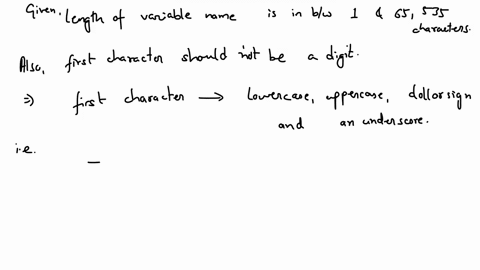 Given. Length of variable name is in b/w 1 & 65,535 characters.
Also, first charactor should not be a digit.
⇒ first character → lowercase, uppercase, dollar sign
and an underscore.
i.e. _